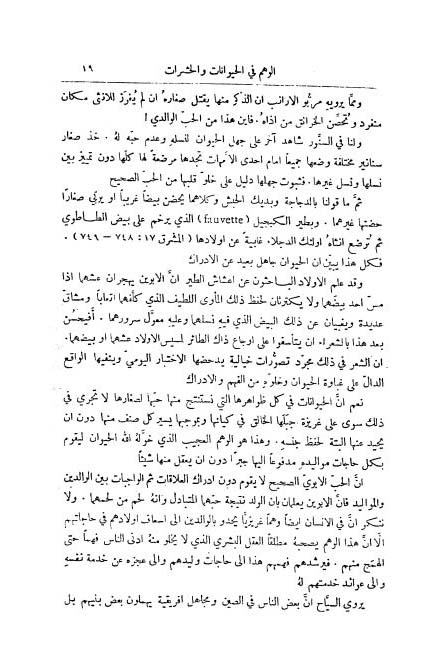 الوهم في الحيوانات والحشرات ١٩
وممَّا يرويهِ مربُّو الارانب ان الذكر منها يقتل صغاره ان لم يُفرَز للانثى مكان
منفرد وتُحصَّن الخرانق من اذاهُ. فاين هذا من الحبّ الوالدي!
ولنا في السنَّور شاهد آخر على جهل الحيوان لنسلهِ وعدم حبّه لهُ. خذ صغار
سنانير مختلفة وضعها جميعاً امام احدى الامهات تجدها مرضعة لها كلّها دون تمييز بين
نسلها ونسل غيرها. فثبوت جهلها دليل على خلوّ قلبها من الحبّ الصحيح
ثمَّ ما قولنا بالدجاجة وبديك الحبش وكلاهما يحضن بيضاً غريباً او يربّي صغاراً
حضنتها غيرهما. وبطير الكبجيل (fauvette) الذي يرخم على بيض الطاطوي
ثم تُرضع انثاهُ اولئك الدجلاء غابيةً عن اولادها (المشرق ١٧: ٧٤٨ – ٧٤٩).
فكل هذا يبيّن ان الحيوان جاهل بعيد عن الادراك
وقد علم الاولاد الباحثون عن اعشاش الطير انَّ الابوين يهجران عشهما اذا
مسّ احد بيضهما ولا يكترثان لحفظ ذلك المأوى اللطيف الذي كلَّفهما اتعاباً ومشاقّ
عديدة ويغيبان عن ذلك البيض الذي فيهِ نسلهما وعليهِ معوَّل سرورهما. أفيحسُن
بعد هذا بالشعراء ان يتأسفوا على اوجاع ذاك الطائر لسيس الاولاد عشهما او بيضهما.
ان الشعر في ذلك مجرّد تصوُّرات خيالية يدحضها الاختبار اليومي وينفيها الواقع
الدالّ على غباوة الحيوان وخلوّهِ من الفهم والادراك
نعم انَّ الحيوانات في كل ظواهرها التي نستنتج منها حبّها لصغارها لا تجري في
ذلك سوى على غريزة جبلها الخالق في كيانها وبموجبها يسير كل صنف منها دون ان
يحيد عنها البتة لحفظ جنسهِ. وهذا هو الوهم العجيب الذي خوَّلهُ الله الحيوان ليقوم
بكل حاجات مواليدهِ مدفوعاً اليها جبراً دون ان يعقل منها شيئاً
انَّ الحبّ الابويّ الصحيح لا يقوم دون ادراك العلاقات ثم الواجبات بين الوالدين
والمواليد فانَّ الابوين يعلمان بان الولد نتيجة حبّهما المتبادل وانهُ لحم من لحمهما. ولا
ننكر انَّ في الانسان ايضاً وهماً غريزيًّا يحدو بالوالدين الى اسعاف اولادهم في حاجاتهم
الَّا انَّ هذا الوهم يصحبهُ مطلقاً العقل البشري الذي لا يخلو منهُ ادنى الناس فهماً حتى
الهمَج منهم. فيرشدهم فهمهم هذا الى حاجات وليدهم والى عجزه عن خدمة نفسهِ
والى عوائد خدمتهم لهُ
يروي السيَّاح انَّ بعض الناس في الصين ومجاهل افريقية يهملون بعض بنيهم بل